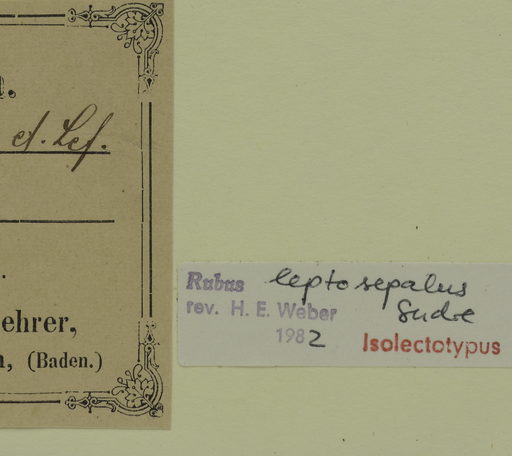 et. Lef.
ehrer,
(Baden.)
Rubus leptosepalus
rev. H. E. Weber Sudre
1982 Isolectotypus